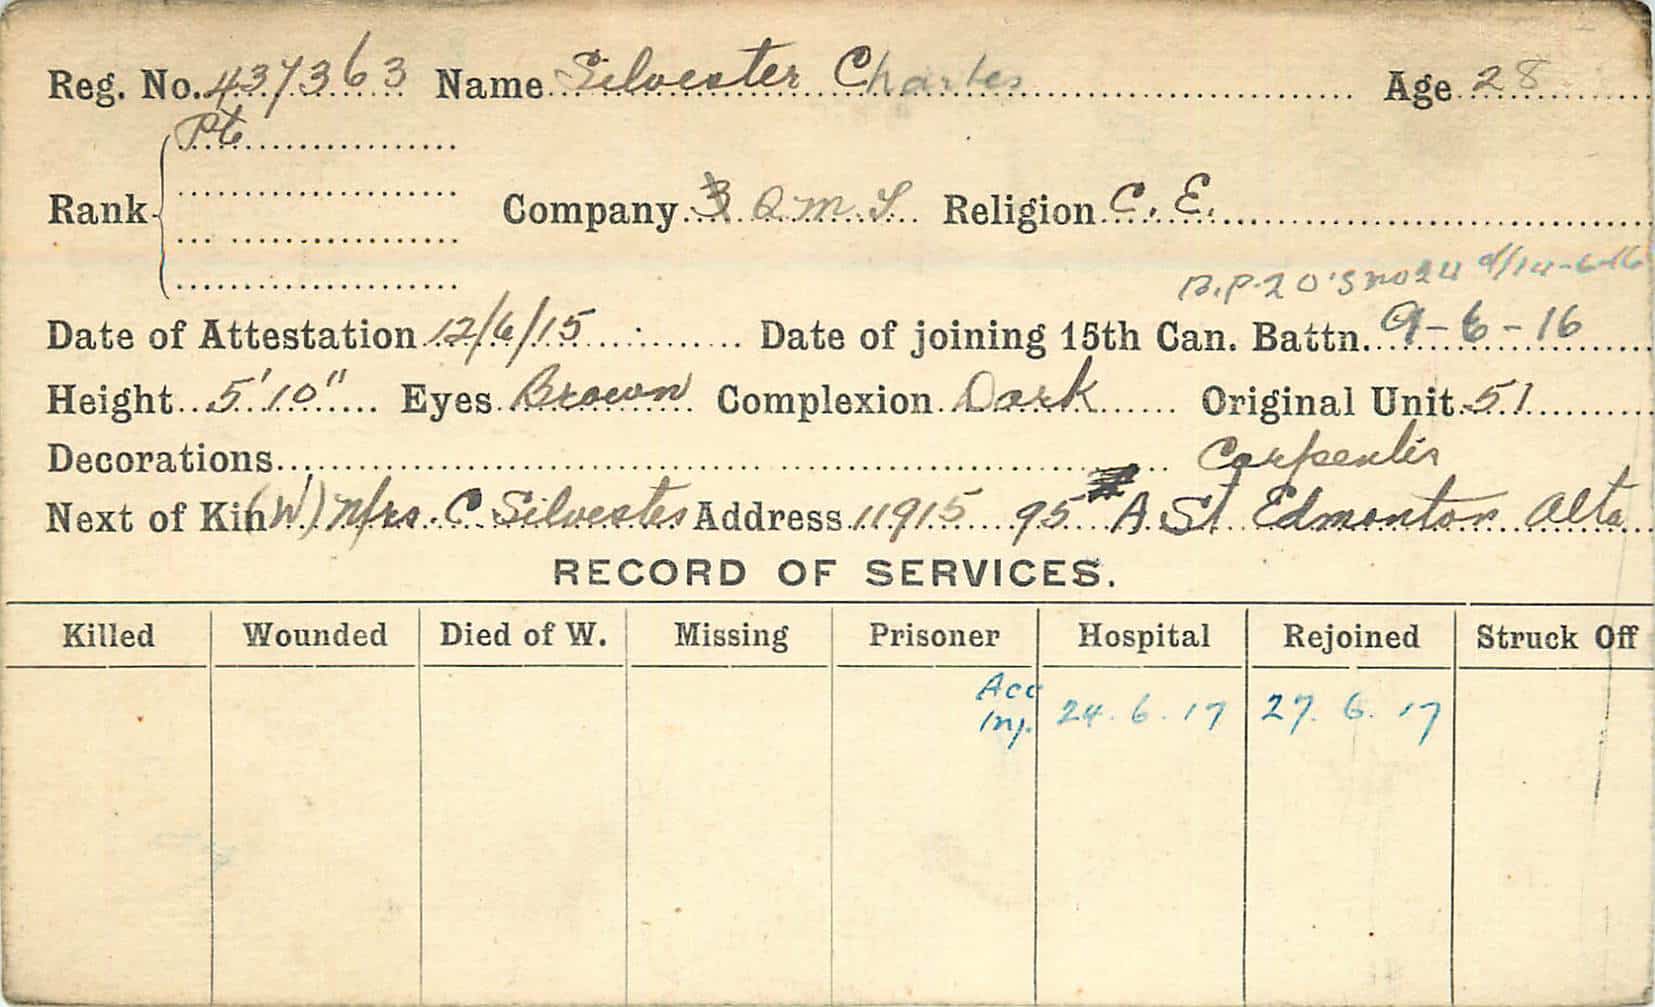 Reg. No. 437363 Name Silvester Charles Age 28
Pte
Rank Company 3 Q.M.S. Religion C. E.
B.P. 2 O's no 24 d/14-6-16
Date of Attestation 12/6/15 Date of joining 15th Can. Battn. 9-6-16
Height 5'10" Eyes Brown Complexion Dark Original Unit 51
Decorations Carpenter
Next of Kin (W) Mrs. C Silvester Address 11915 95 A St Edmonton Alta
RECORD OF SERVICES.
Killed Wounded Died of W. Missing Prisoner Hospital Rejoined Struck Off
Acc
Inj. 24.6.17 27.6.17